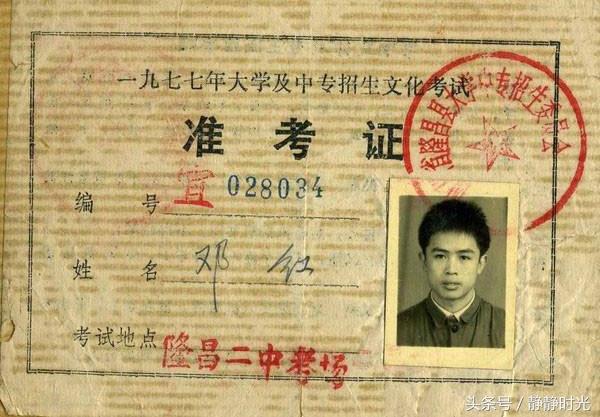 一九七七年大学及中专招生文化考试
准考证
省隆昌县大学中专招生委员会
编 号 宜 028034
姓 名 邓 红
考试地点 隆昌二中考场
头条号 / 静静时光